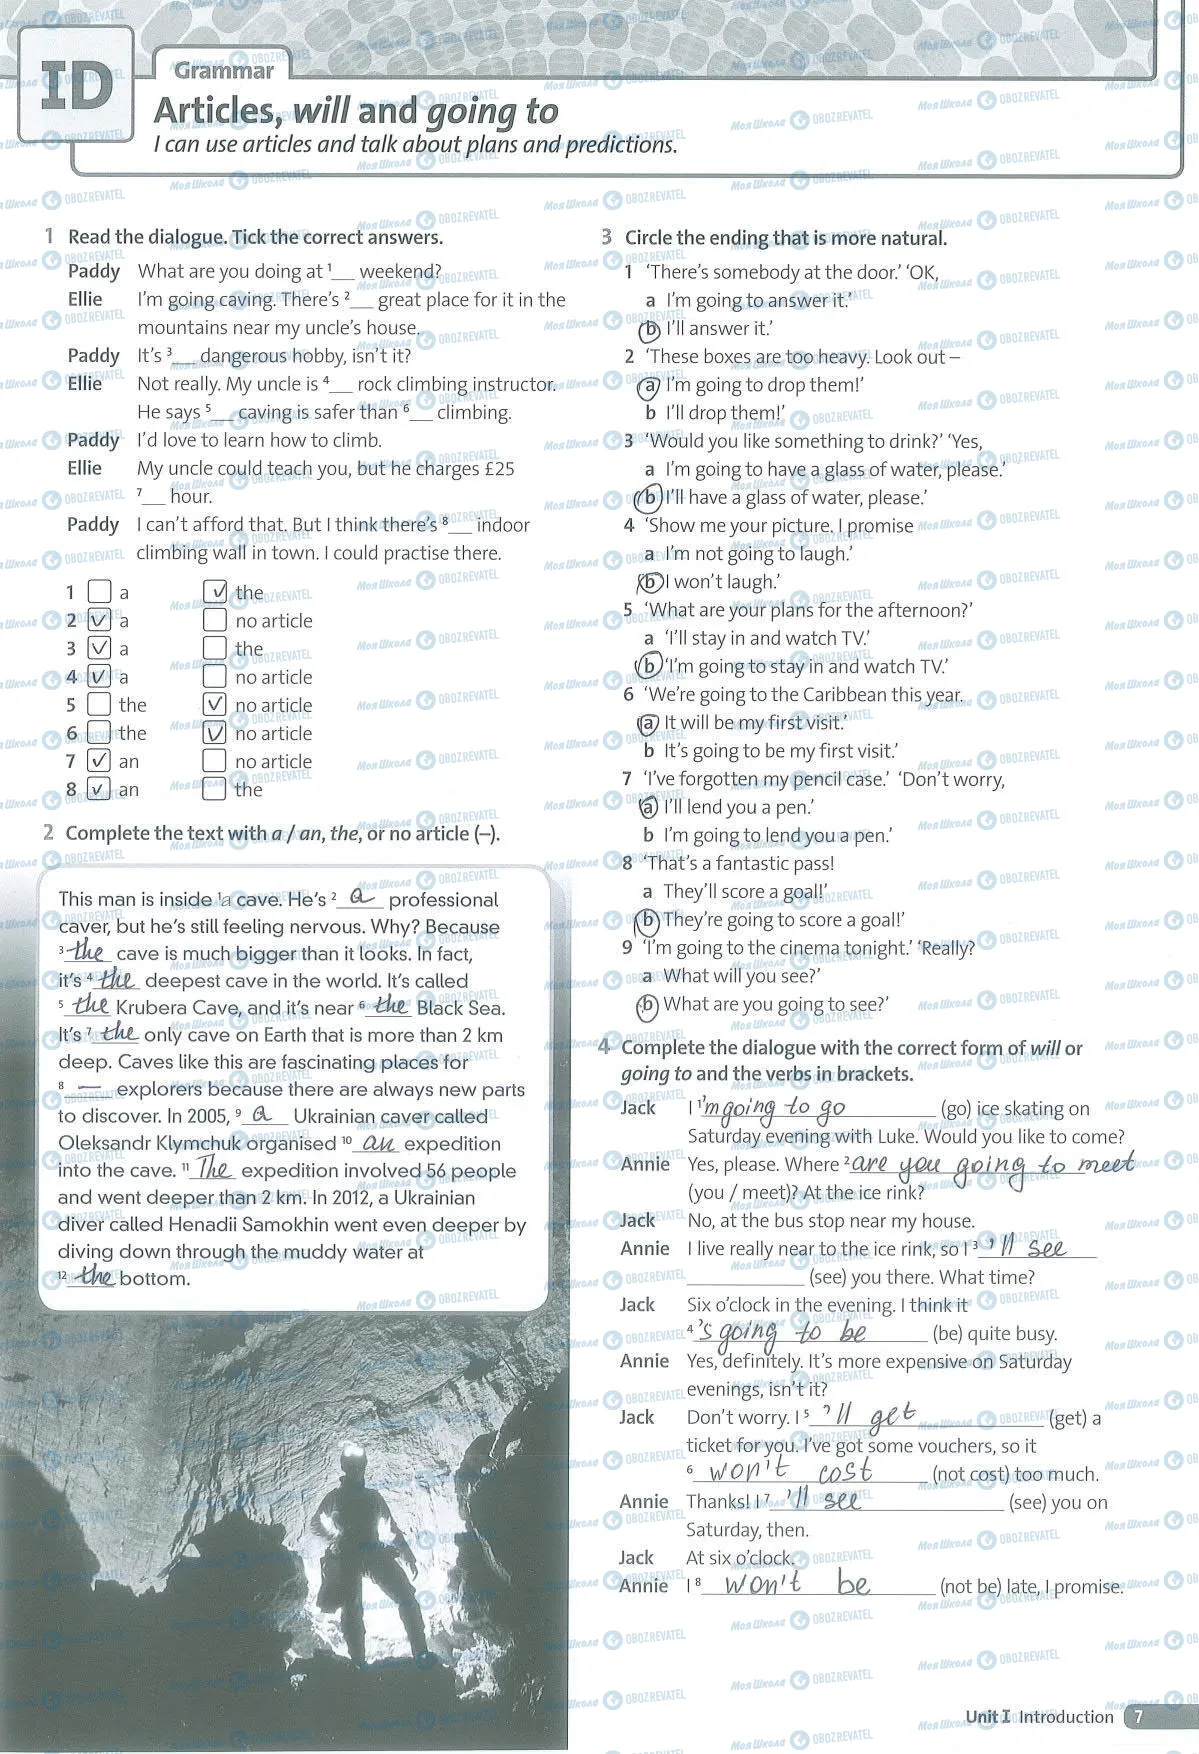 ID
Grammar
Articles, will and going to
I can use articles and talk about plans and predictions.
1 Read the dialogue. Tick the correct answers.
Paddy What are you doing at 1__ weekend?
Ellie I'm going caving. There's 2__ great place for it in the
mountains near my uncle's house.
Paddy It's 3__ dangerous hobby, isn't it?
Ellie Not really. My uncle is 4__ rock climbing instructor.
He says 5__ caving is safer than 6__ climbing.
Paddy I'd love to learn how to climb.
Ellie My uncle could teach you, but he charges £25
7__ hour.
Paddy I can't afford that. But I think there's 8__ indoor
climbing wall in town. I could practise there.
1 a ✓ the
2 ✓ a no article
3 ✓ a the
4 ✓ a no article
5 the ✓ no article
6 the ✓ no article
7 ✓ an no article
8 ✓ an the
2 Complete the text with a / an, the, or no article (–).
This man is inside 1a cave. He's 2 a professional
caver, but he's still feeling nervous. Why? Because
3 the cave is much bigger than it looks. In fact,
it's 4 the deepest cave in the world. It's called
5 the Krubera Cave, and it's near 6 the Black Sea.
It's 7 the only cave on Earth that is more than 2 km
deep. Caves like this are fascinating places for
8 — explorers because there are always new parts
to discover. In 2005, 9 a Ukrainian caver called
Oleksandr Klymchuk organised 10 an expedition
into the cave. 11 The expedition involved 56 people
and went deeper than 2 km. In 2012, a Ukrainian
diver called Henadii Samokhin went even deeper by
diving down through the muddy water at
12 the bottom.
3 Circle the ending that is more natural.
1 'There's somebody at the door.' 'OK,
a I'm going to answer it.'
b I'll answer it.'
2 'These boxes are too heavy. Look out –
a I'm going to drop them!'
b I'll drop them!'
3 'Would you like something to drink?' 'Yes,
a I'm going to have a glass of water, please.'
b I'll have a glass of water, please.'
4 'Show me your picture. I promise
a I'm not going to laugh.'
b I won't laugh.'
5 'What are your plans for the afternoon?'
a 'I'll stay in and watch TV.'
b 'I'm going to stay in and watch TV.'
6 'We're going to the Caribbean this year.
a It will be my first visit.'
b It's going to be my first visit.'
7 'I've forgotten my pencil case.' 'Don't worry,
a I'll lend you a pen.'
b I'm going to lend you a pen.'
8 'That's a fantastic pass!
a They'll score a goal!'
b They're going to score a goal!'
9 'I'm going to the cinema tonight.' 'Really?
a What will you see?'
b What are you going to see?'
4 Complete the dialogue with the correct form of will or
going to and the verbs in brackets.
Jack I 1 'm going to go (go) ice skating on
Saturday evening with Luke. Would you like to come?
Annie Yes, please. Where 2 are you going to meet
(you / meet)? At the ice rink?
Jack No, at the bus stop near my house.
Annie I live really near to the ice rink, so I 3 'll see
(see) you there. What time?
Jack Six o'clock in the evening. I think it
4 's going to be (be) quite busy.
Annie Yes, definitely. It's more expensive on Saturday
evenings, isn't it?
Jack Don't worry. I 5 'll get (get) a
ticket for you. I've got some vouchers, so it
6 won't cost (not cost) too much.
Annie Thanks! I 7 'll see (see) you on
Saturday, then.
Jack At six o'clock.
Annie I 8 won't be (not be) late, I promise.
Unit I Introduction 7
Моя Школа OBOZREVATEL